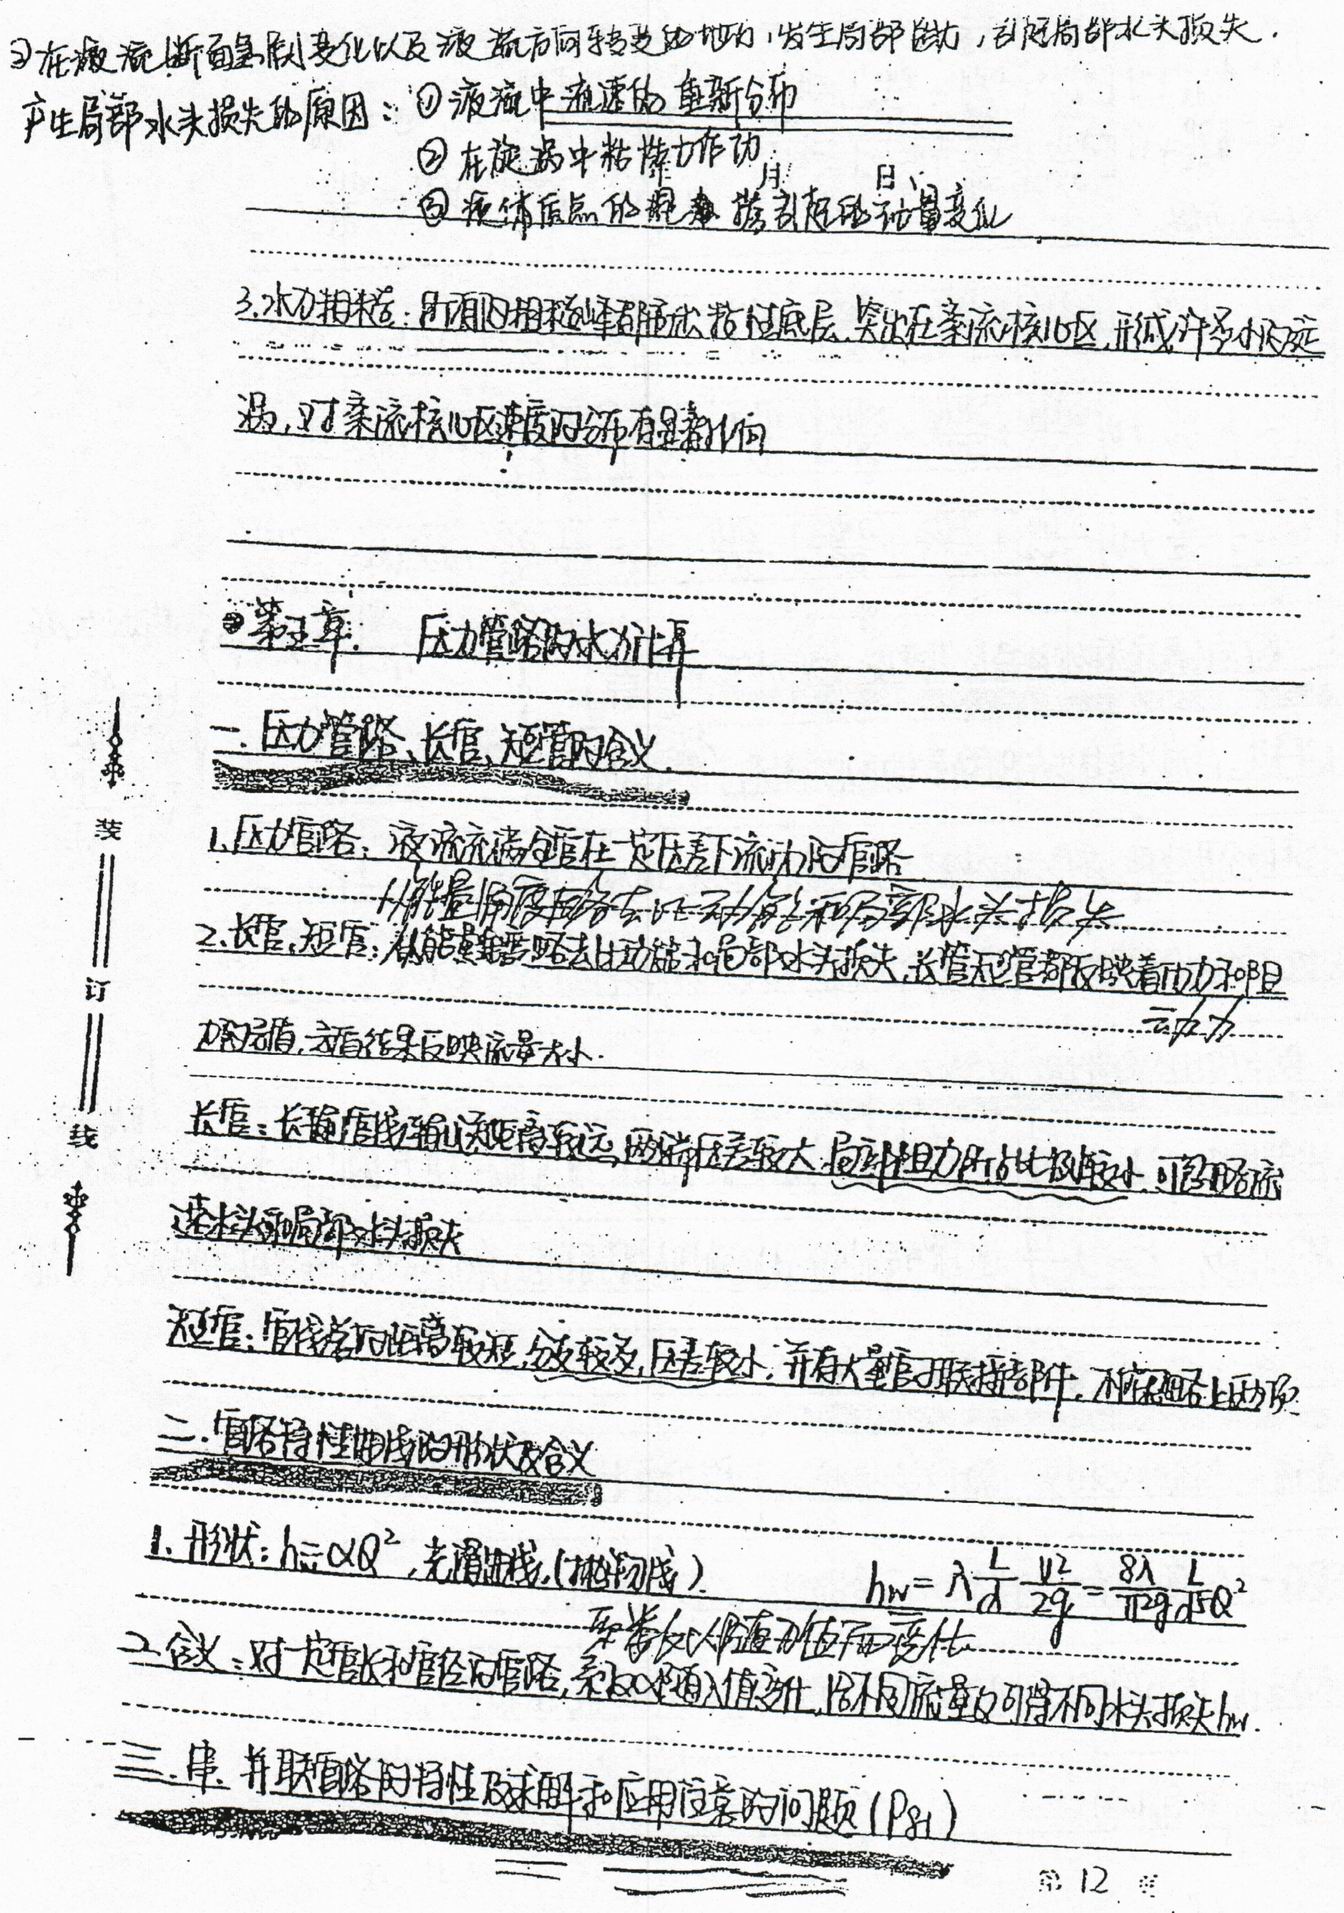 ②在液流断面急剧变化以及液流方向转变的地方,发生局部阻力,引起局部水头损失.
产生局部水头损失的原因:①液流中流速的重新分布
②在旋涡中粘滞力作功
月 日
③液体质点的混掺引起的动量变化
3.水力粗糙:所有的粗糙峰都高出粘性底层,突出在紊流核心区,形成许多小的旋
涡,对紊流核心区速度的分布有显著影响
第五章. 压力管路的水力计算
一.压力管路、长管、短管的含义.
1.压力管路:液流充满全管在一定压差下流动的管路
从能量角度略去比动能和局部水头损失
2.长管,短管:从能量角度略去比动能和局部水头损失,长管短管都反映着动力和阻
动力
力的矛盾,矛盾结果反映流量大小.
长管:长输管线输送距离较远,两端压差较大,局部阻力所占比例较小,可忽略流
速水头和局部水头损失
短管:管线若的距离较短,分支较多,压差较小,并有大量管子联接部件,不能忽略上压力项
二.管路特性曲线的形状及含义
1.形状:h=αQ²,光滑曲线.(抛物线). hw=λ L/d V²/2g = 8λ/π²g L/d⁵ Q²
系数α只随λ值而变化
2.含义:对一定管长和管径的管路,系数α只随λ值变化,给不同流量Q可得不同水头损失hw.
三.串、并联管路的特性及求解和应用注意的问题(P81)
装
订
线
第 12 页